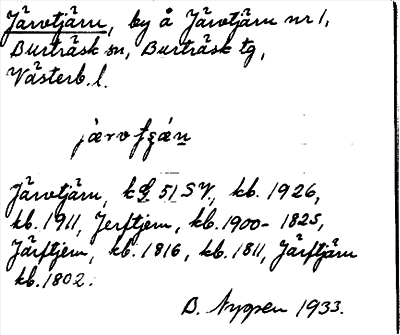 Järvtjärn, by å Järvtjärn nr 1,
Burträsk sn, Burträsk tg,
Västerb. l.
Järvtjärn, 51 SV., kb. 1926,
kb. 1911, Jerftjern, kb. 1900-1825,
Järftjern, kb. 1816, kb. 1811, Järftjärn
kb. 1802.
D. Nygren 1933.